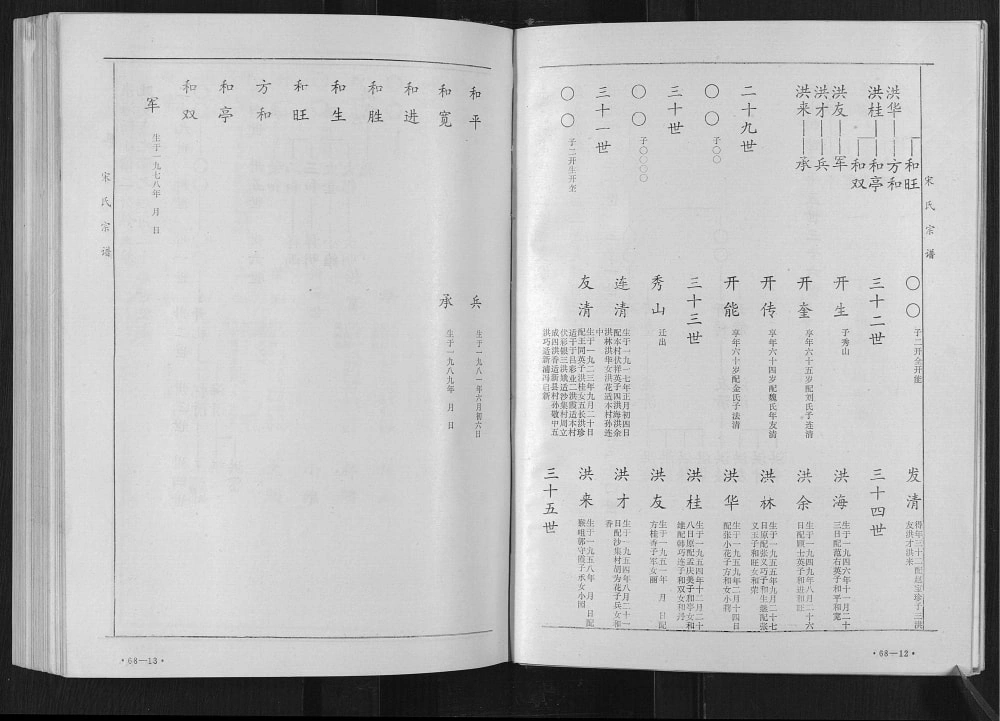 宋氏宗谱
和旺
洪华——方和
洪桂——和亭
和双
洪友——军
洪才——兵
洪来——承
二十九世
〇〇 子〇〇
三十世
〇〇 子〇〇〇〇
三十一世
〇〇 子二开生开奎
〇〇 子二开全开能
三十二世
开生 子秀山
开奎 享年六十五岁配刘氏子连清
开传 享年六十四岁配魏氏年友清
开能 享年六十岁配金氏子法清
三十三世
秀山 迁出
连清 生于一九一七年正月初四日
配本村伏祥英子四洪海洪余
洪林洪华女洪花适本村孙连
中
友清 生于一九二三年九月二十日
配王同英子洪桂女五长洪珍
适于于昌彩业二洪霞适本村
伏彩银三洪娥适沙集村周立
成四洪香适新县村孙敬中五
洪巧适新浦冯启新
发清 得年三十二配赵宝珍子三洪
友洪才洪来
三十四世
洪海 生于一九四六年十一月二十
三日配范右英子和平和宽
洪余 生于一九四九年八月二十六
日配顾士英子和进和旺
洪林 生于一九五五年九月二十七
日原配张义巧子和生继配张
义玉子和旺女和荣
洪华 生于一九五九年二月十四日
配张小花子方和女小蒋
洪桂 生于一九五四年十二月二十
八日原配孟庆美子和亭女和
雄配韩巧连子和双女和丹
洪友 生于一九五一年 月 日配
方桂香子军女丽
洪才 生于一九五四年八月二十一
日配沙集村胡为花子兵女雍
香
洪来 生于一九五八年 月 日配
猴咀郭守霞子承女小园
三十五世
·68—12·
和平
和宽
和进
和胜
和生
和旺
方和
和亭
和双
军 生于一九七八年 月 日
兵 生于一九八一年六月初六日
承 生于一九八九年 月 日
宋氏宗谱
·68—13·